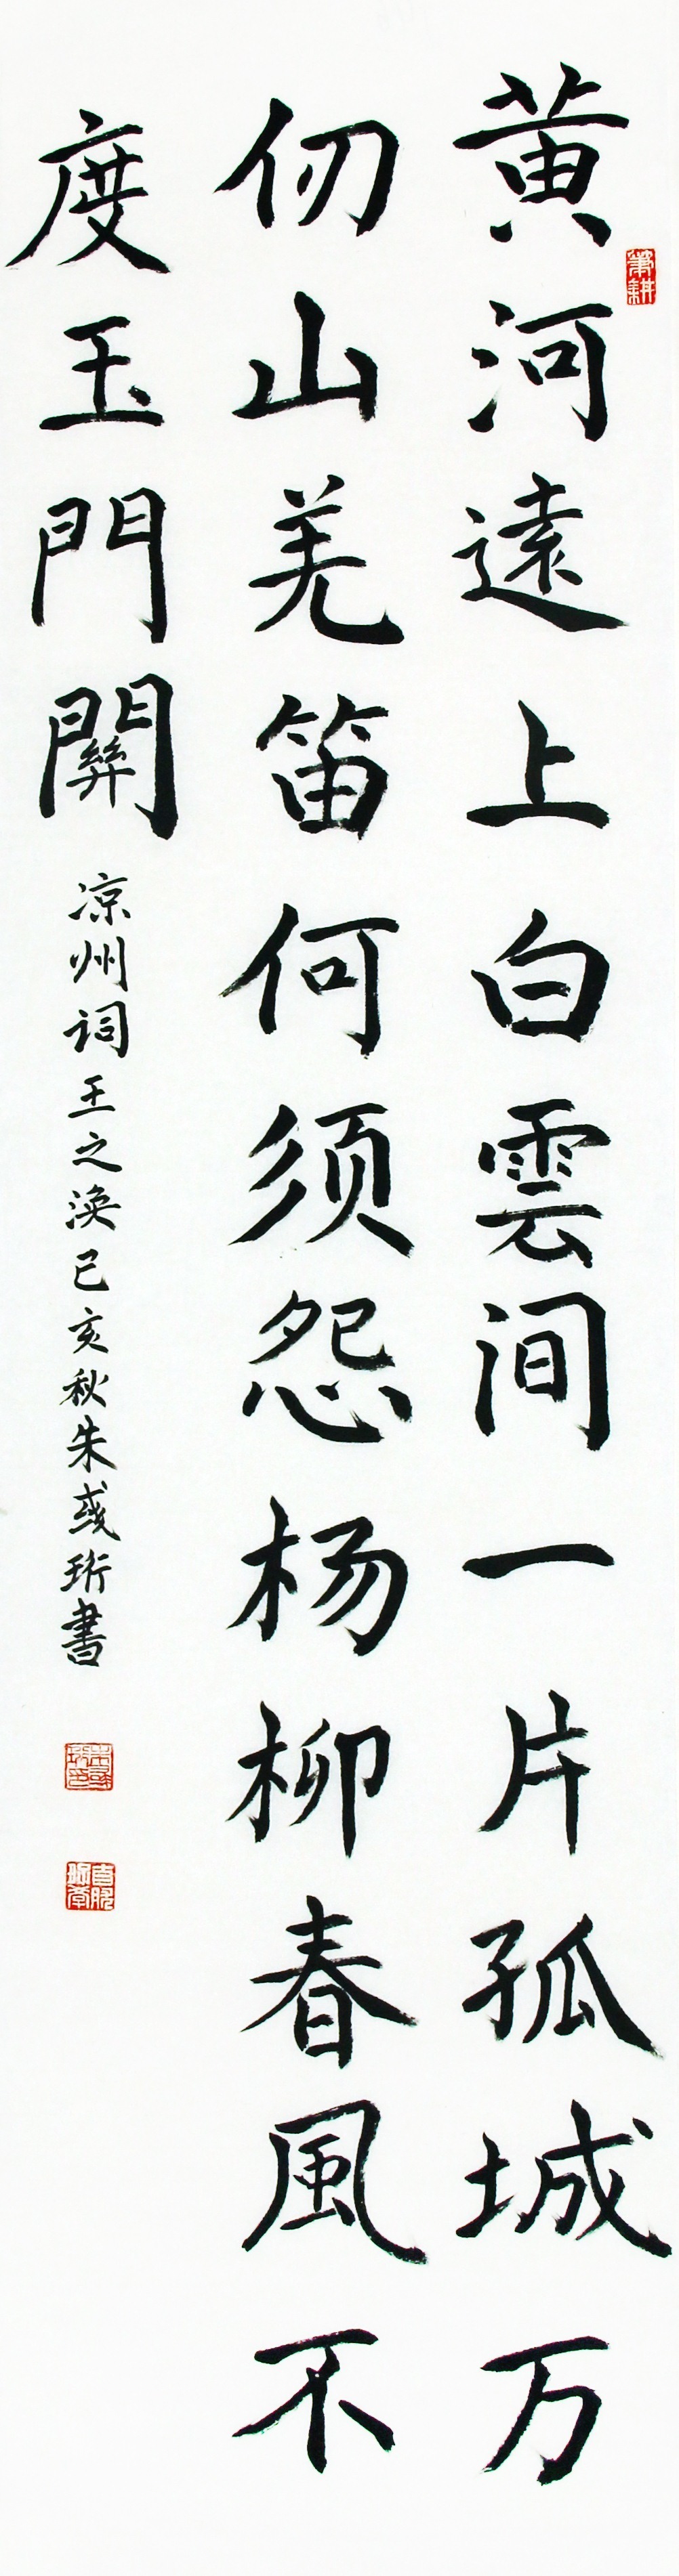 黄河遠上白雲间一片孤城万
仞山羌笛何须怨杨柳春風不
度玉門關
凉州词王之涣己亥秋朱彧珩書
筆耕